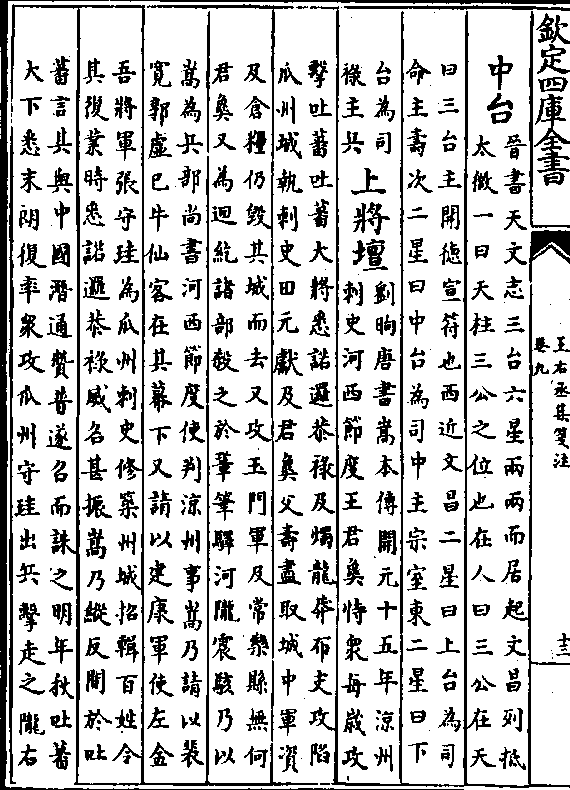 欽定四庫全書
王右丞集箋注
卷九
十三
中台
晉書天文志三台六星兩兩而居起文昌列抵
太微一曰天柱三公之位也在人曰三公在天
曰三台主開德宣符也西近文昌二星曰上台為司
命主壽次二星曰中台為司中主宗室東二星曰下
台為司
祿主兵
上將壇
劉昫唐書嵩本傳開元十五年涼州
刺史河西節度王君㚟恃衆每歲攻
擊吐蕃吐蕃大將悉諾邏恭祿及燭龍莽布支攻陷
瓜州城執刺史田元獻及君㚟父壽盡取城中軍資
及倉糧仍毀其城而去又攻玉門軍及常樂縣無何
君㚟又為迴紇諸部殺之於鞏筆驛河隴震駭乃以
嵩為兵部尚書河西節度使判涼州事嵩乃請以裴
寛郭虛巳牛仙客在其幕下又請以建康軍使左金
吾將軍張守珪為瓜州刺史修築州城招輯百姓令
其復業時悉諾邏恭祿威名甚振嵩乃縱反間於吐
蕃言其與中國潛通贊普遂召而誅之明年秋吐蕃
大下悉末朗復率衆攻瓜州守珪出兵擊走之隴右